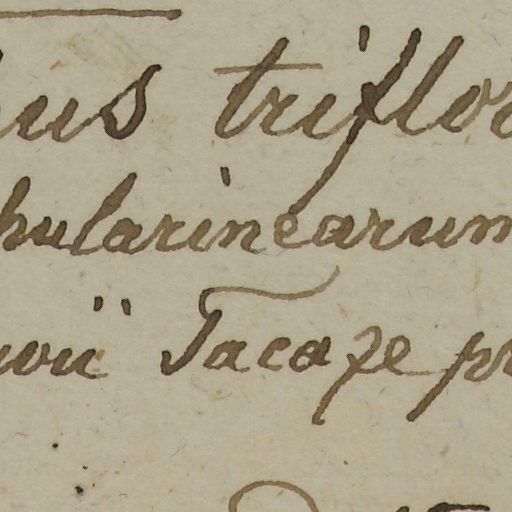 us triflo
hularinearum
vii Tacaze pr